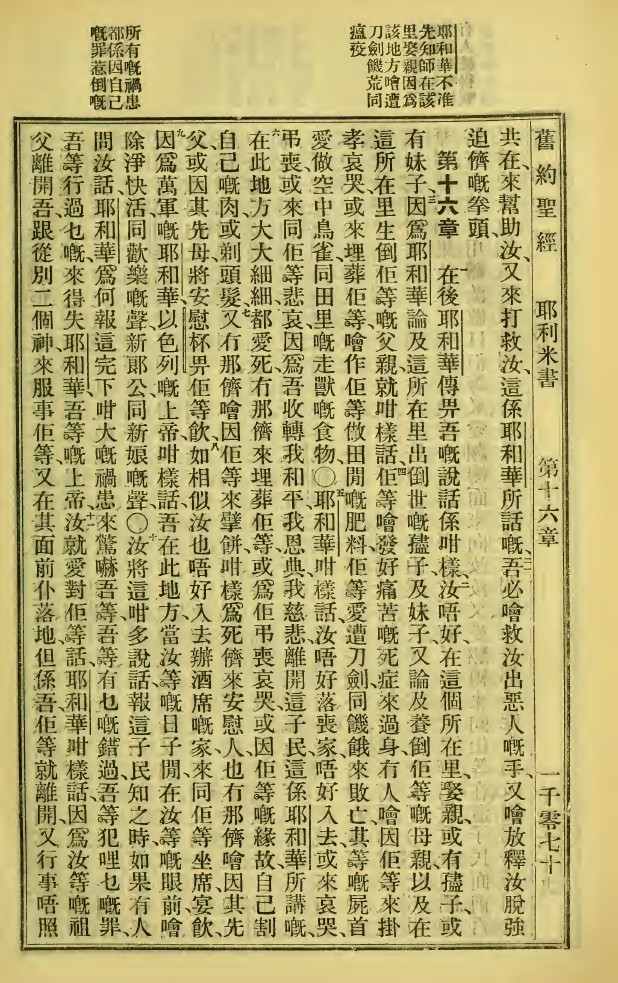 舊約聖經　耶利米書　第十六章　一千零七十
耶和華不准
先知師在該
里娶親因爲
該地方噲遭
刀劍饑荒同
瘟疫
所有嘅禍患
都係因自己
嘅罪惹倒嘅
共在、來幫助汝、又來打救汝、這係耶和華所話嘅、吾必噲救汝出惡人嘅手、又噲放釋汝脫強
迫儕嘅拳頭、
第十六章　一在後耶和華傳畀吾嘅說話係咁樣、二汝唔好在這個所在里娶親、或有孻子、或
有妹子、三因爲耶和華論及這所在里出倒世嘅孻子及妹子、又論及養倒佢等嘅母親以及在
這所在里生倒佢等嘅父親、就咁樣話、四佢等噲發好痛苦嘅死症來過身、有人噲因佢等來掛
孝哀哭、或來埋葬佢等、噲作佢等做田閒嘅肥料、佢等愛遭刀劍、同饑餓來敗亡、其等嘅屍首
愛做空中鳥雀、同田里嘅走獸嘅食物、〇五耶和華咁樣話、汝唔好落喪家、唔好入去、或來哀哭、
弔喪、或來同佢等悲哀、因爲吾收轉我和平我恩典我慈悲離開這子民、這係耶和華所講嘅、
六在此地方大大細細、都愛死、有那儕來埋葬佢等、或爲佢弔喪哀哭、或因佢等嘅緣故、自己割
自己嘅肉、或剃頭髮、七又有那儕噲因佢等來擘餅、咁樣爲死儕來安慰人、也有那儕噲因其先
父或因其先母、將安慰杯畀佢等飲、八如相似汝也唔好入去辦酒席嘅家、來同佢等坐席、宴飲、
九因爲萬軍嘅耶和華、以色列嘅上帝咁樣話、吾在此地方、當汝等嘅日子閒、在汝等嘅眼前、噲
除淨快活同歡樂嘅聲、新郞公同新娘嘅聲、〇十汝將這咁多說話、報這子民知之時、如果有人
問汝話、耶和華爲何報這完下咁大嘅禍患、來驚嚇吾等、吾等有乜嘅錯過、吾等犯哩乜嘅罪、
吾等行過乜嘅來得失耶和華、吾等嘅上帝、十一汝就愛對佢等話、耶和華咁樣話、因爲汝等嘅祖
父離開吾、跟從別二個神、來服事佢等、又在其面前仆落地、但係吾佢等就離開、又行事唔照